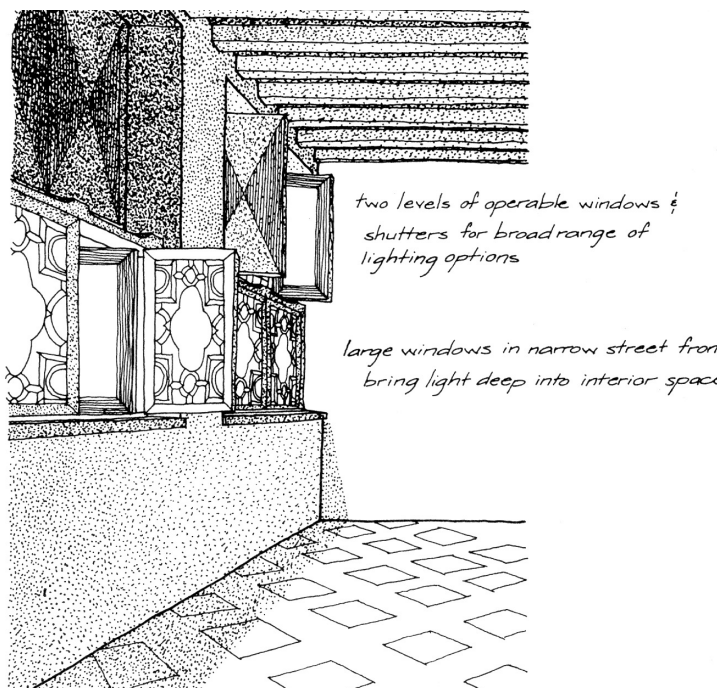 two levels of operable windows &
shutters for broad range of
lighting options
large windows in narrow street
bring light deep into interior